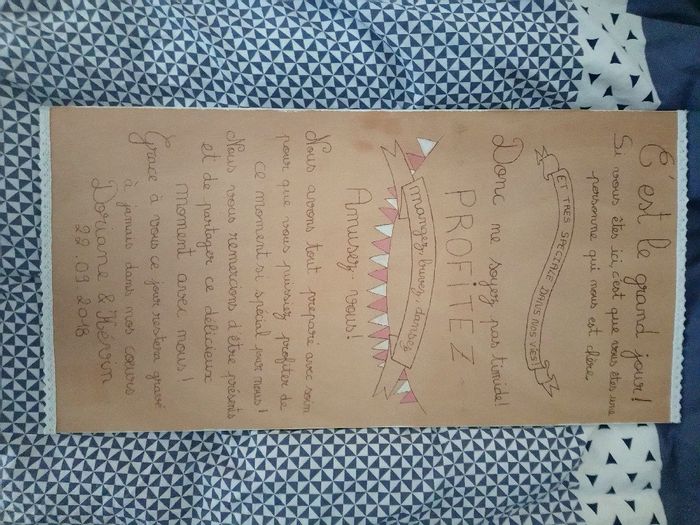 C'est le grand jour!
Si vous êtes ici c'est que vous êtes une
personne qui nous est chère
ET TRES SPECIALE DANS NOS VIES!
Donc ne soyez pas timide!
PROFITEZ
mangez, buvez, dansez
Amusez-vous!
Nous avons tout préparé avec soin
pour que vous puissiez profiter de
ce moment si spécial pour nous!
Nous vous remercions d'être présents
et de partager ce délicieux
moment avec nous!
Grace à vous ce jour restera gravé
à jamais dans nos coeurs
Doriane & Kevin
22.09.2018